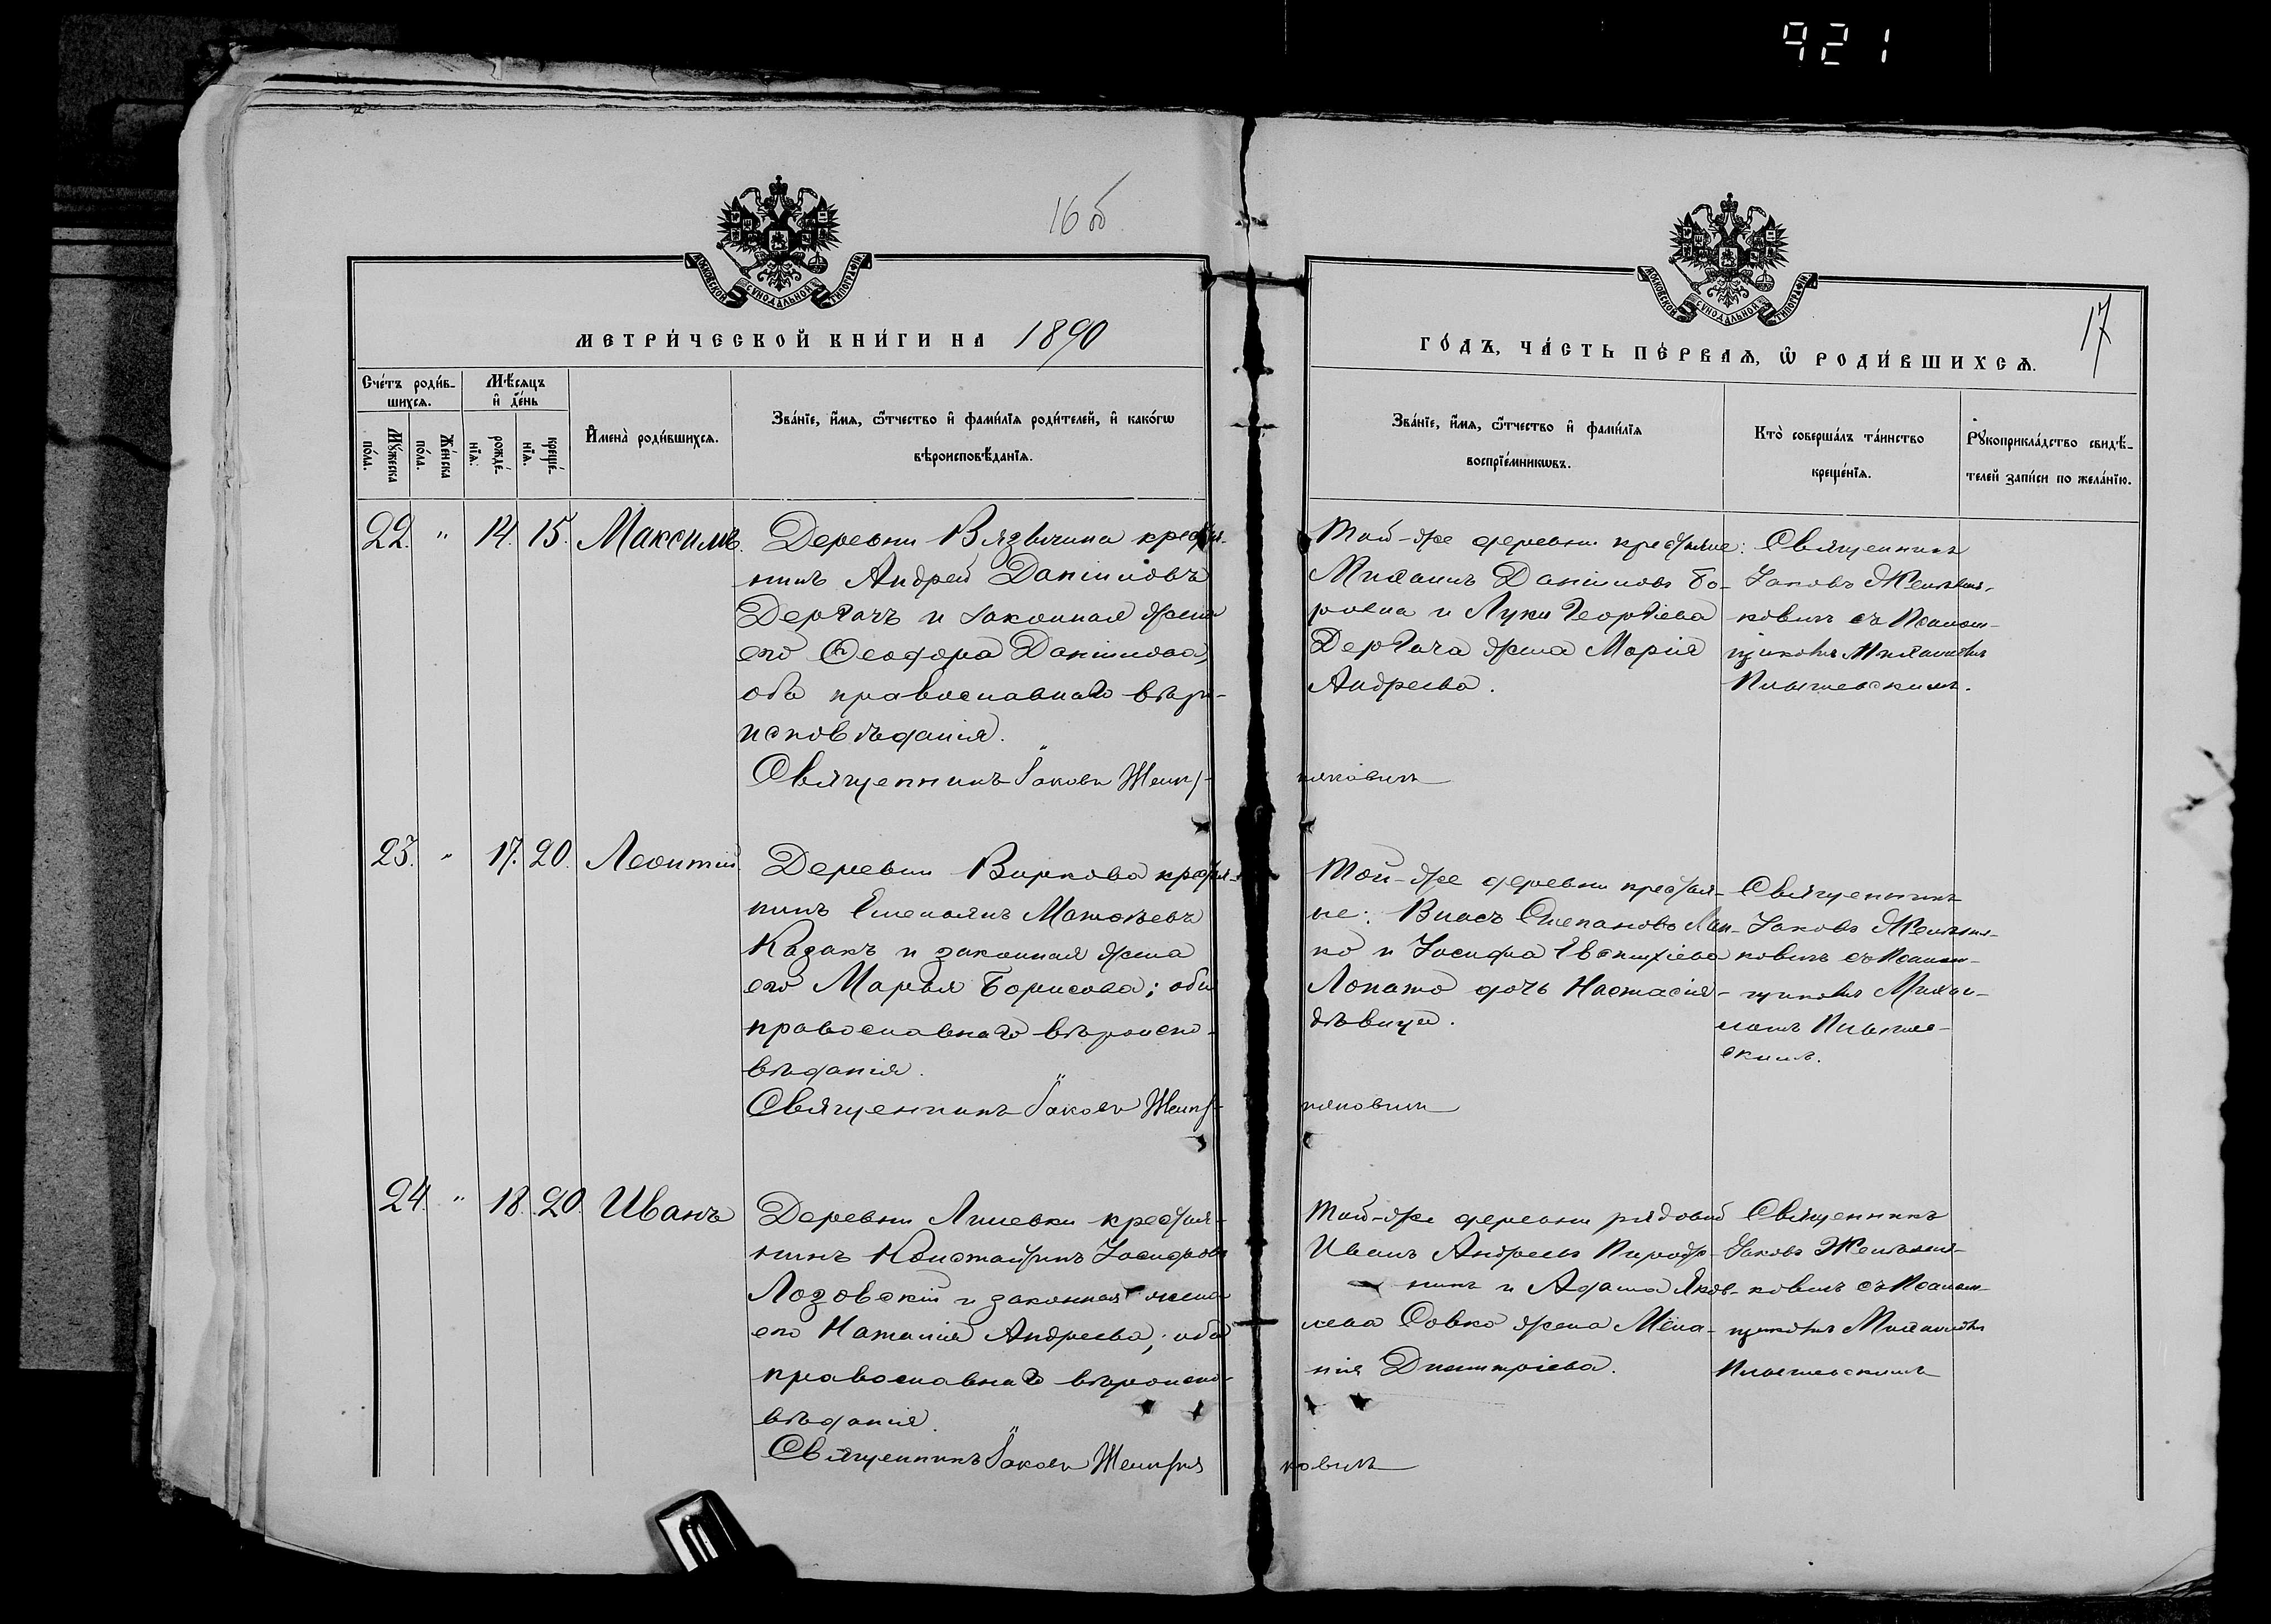 921
16 об
МОСКОВСКОЙ СѴНОДАЛЬНОЙ ТИПОГРАФІИ
МЕТРИ́ЧЕСКОЙ КНИ́ГИ НА 1890
Сче́тъ роди́в-
шихсѧ.
Мѣ́сѧцъ
и҆ де́нь
Мꙋ́жеска
по́ла.
Же́нска
по́ла.
рожде́-
нїѧ.
креще́-
нїѧ.
И҆мена̀ роди́вшихсѧ.
Зва́нїе, и҆́мѧ, ѻ҆́тчество и҆ фами́лїѧ роди́телей, и҆ како́гѡ
вѣроисповѣ́данїѧ.
22. " 14. 15. Максимъ.
Деревни Вязычина кресть-
нинъ Андрей Даніиловъ
Дергачъ и законная жена
его Ѳеодора Данилова,
оба православнаго вѣро-
исповѣданія.
Священникъ Іаковъ
23. " 17. 20. Леонтій
Деревни Виркова крестья-
нинъ Емельянъ Матѳѣевъ
Казакъ и законная жена
его Марья Борисова; оба
православнаго вѣроиспо-
вѣданія.
Священникъ Іаковъ
24. " 18. 20. Иванъ
Деревни Лишевки крестья-
нинъ Константинъ Іосифовъ
Лозовскій и законная жена
его Наталія Андреева; оба
православнаго вѣроиспо-
вѣданія.
Священникъ Іаковъ
МОСКОВСКОЙ СѴНОДАЛЬНОЙ ТИПОГРАФІИ
17
ГО́ДЪ, ЧА́СТЬ ПЕ́РВАѦ, Ѡ҆ РОДИ́ВШИХСѦ.
Зва́нїе, и҆́мѧ, ѻ҆́тчество и҆ фами́лїѧ
воспрїе́мникѡвъ.
Кто̀ соверша́лъ та́инство
креще́нїѧ.
Рꙋкоприкла́дство свидѣ́-
телей за́писи по жела́нїю.
Той-же деревни крестьяне:
Михаилъ Даніиловъ Бо-
и Луки Георгіева
Дергача жена Марія
Андреева.
Священникъ
Іаковъ
ковичъ съ Псалом-
щикомъ Михаиломъ
Той-же деревни крестья-
не: Власъ Степановъ Лап-
ко и Іосифа Евстихіева
Лопато дочь Настасія-
дѣвица.
Священникъ
Іаковъ
ковичъ съ Псалом-
щикомъ Михаи-
ломъ
скимъ.
Той-же деревни рядовой
Иванъ Андреевъ
нинъ и Адама Яков-
лева Совко жена Мела-
нія Димитріева.
Священникъ
Іаковъ
ковичъ съ Псалом-
щикомъ Михаиломъ